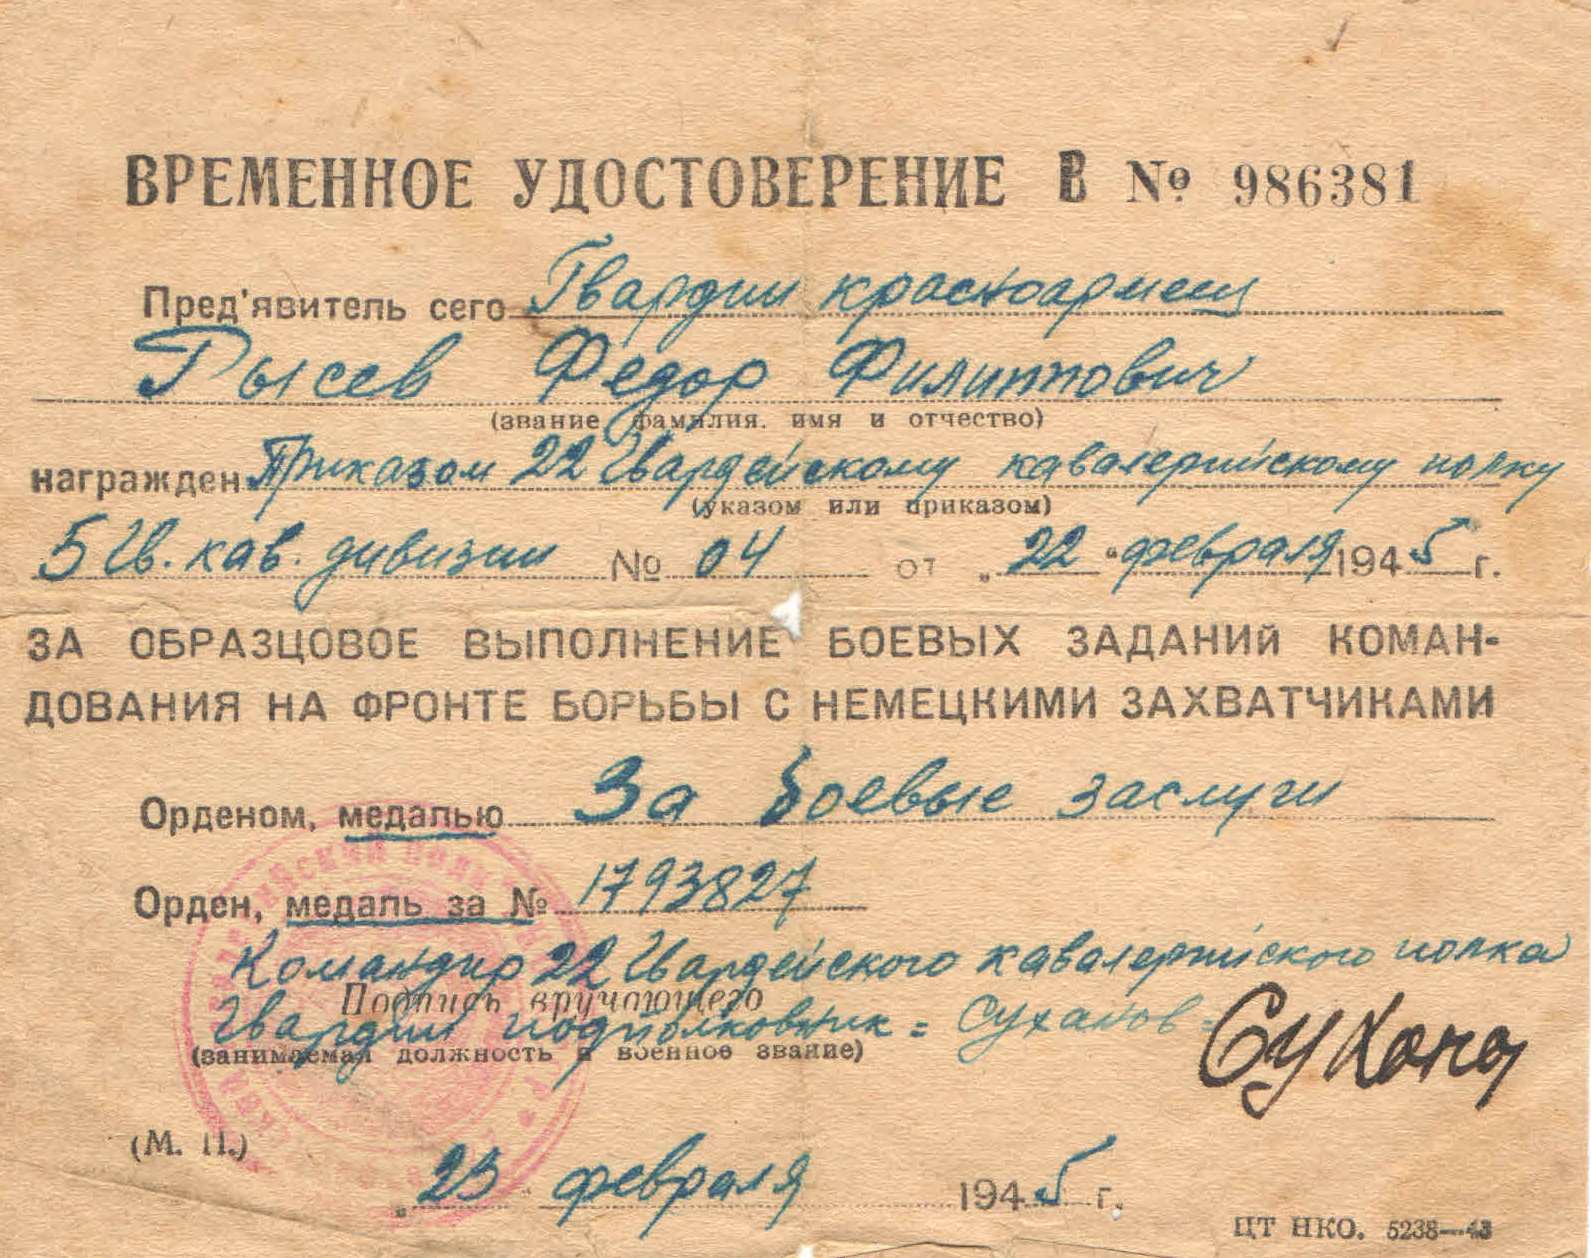 ВРЕМЕННОЕ УДОСТОВЕРЕНИЕ В № 986381
Пред'явитель сего Гвардии красноармеец
Рысев Федор Филиппович
(звание фамилия. имя и отчество)
награжден Приказом 22 Гвардейскому кавалерийскому полку
(указом или приказом)
5 Гв. кав. дивизии № 04 от „22 “ февраля 1945 г.
ЗА ОБРАЗЦОВОЕ ВЫПОЛНЕНИЕ БОЕВЫХ ЗАДАНИЙ КОМАН-
ДОВАНИЯ НА ФРОНТЕ БОРЬБЫ С НЕМЕЦКИМИ ЗАХВАТЧИКАМИ
Орденом, медалью За боевые заслуги
Орден, медаль за № 1793827
Командир 22 Гвардейского кавалерийского полка
Подпись вручающего
Гвардии подполковник = Суханов =
(занимаемая должность и военное звание)
(М. П.)
„23 “ февраля 1945 г.
ЦТ НКО. 5238—43